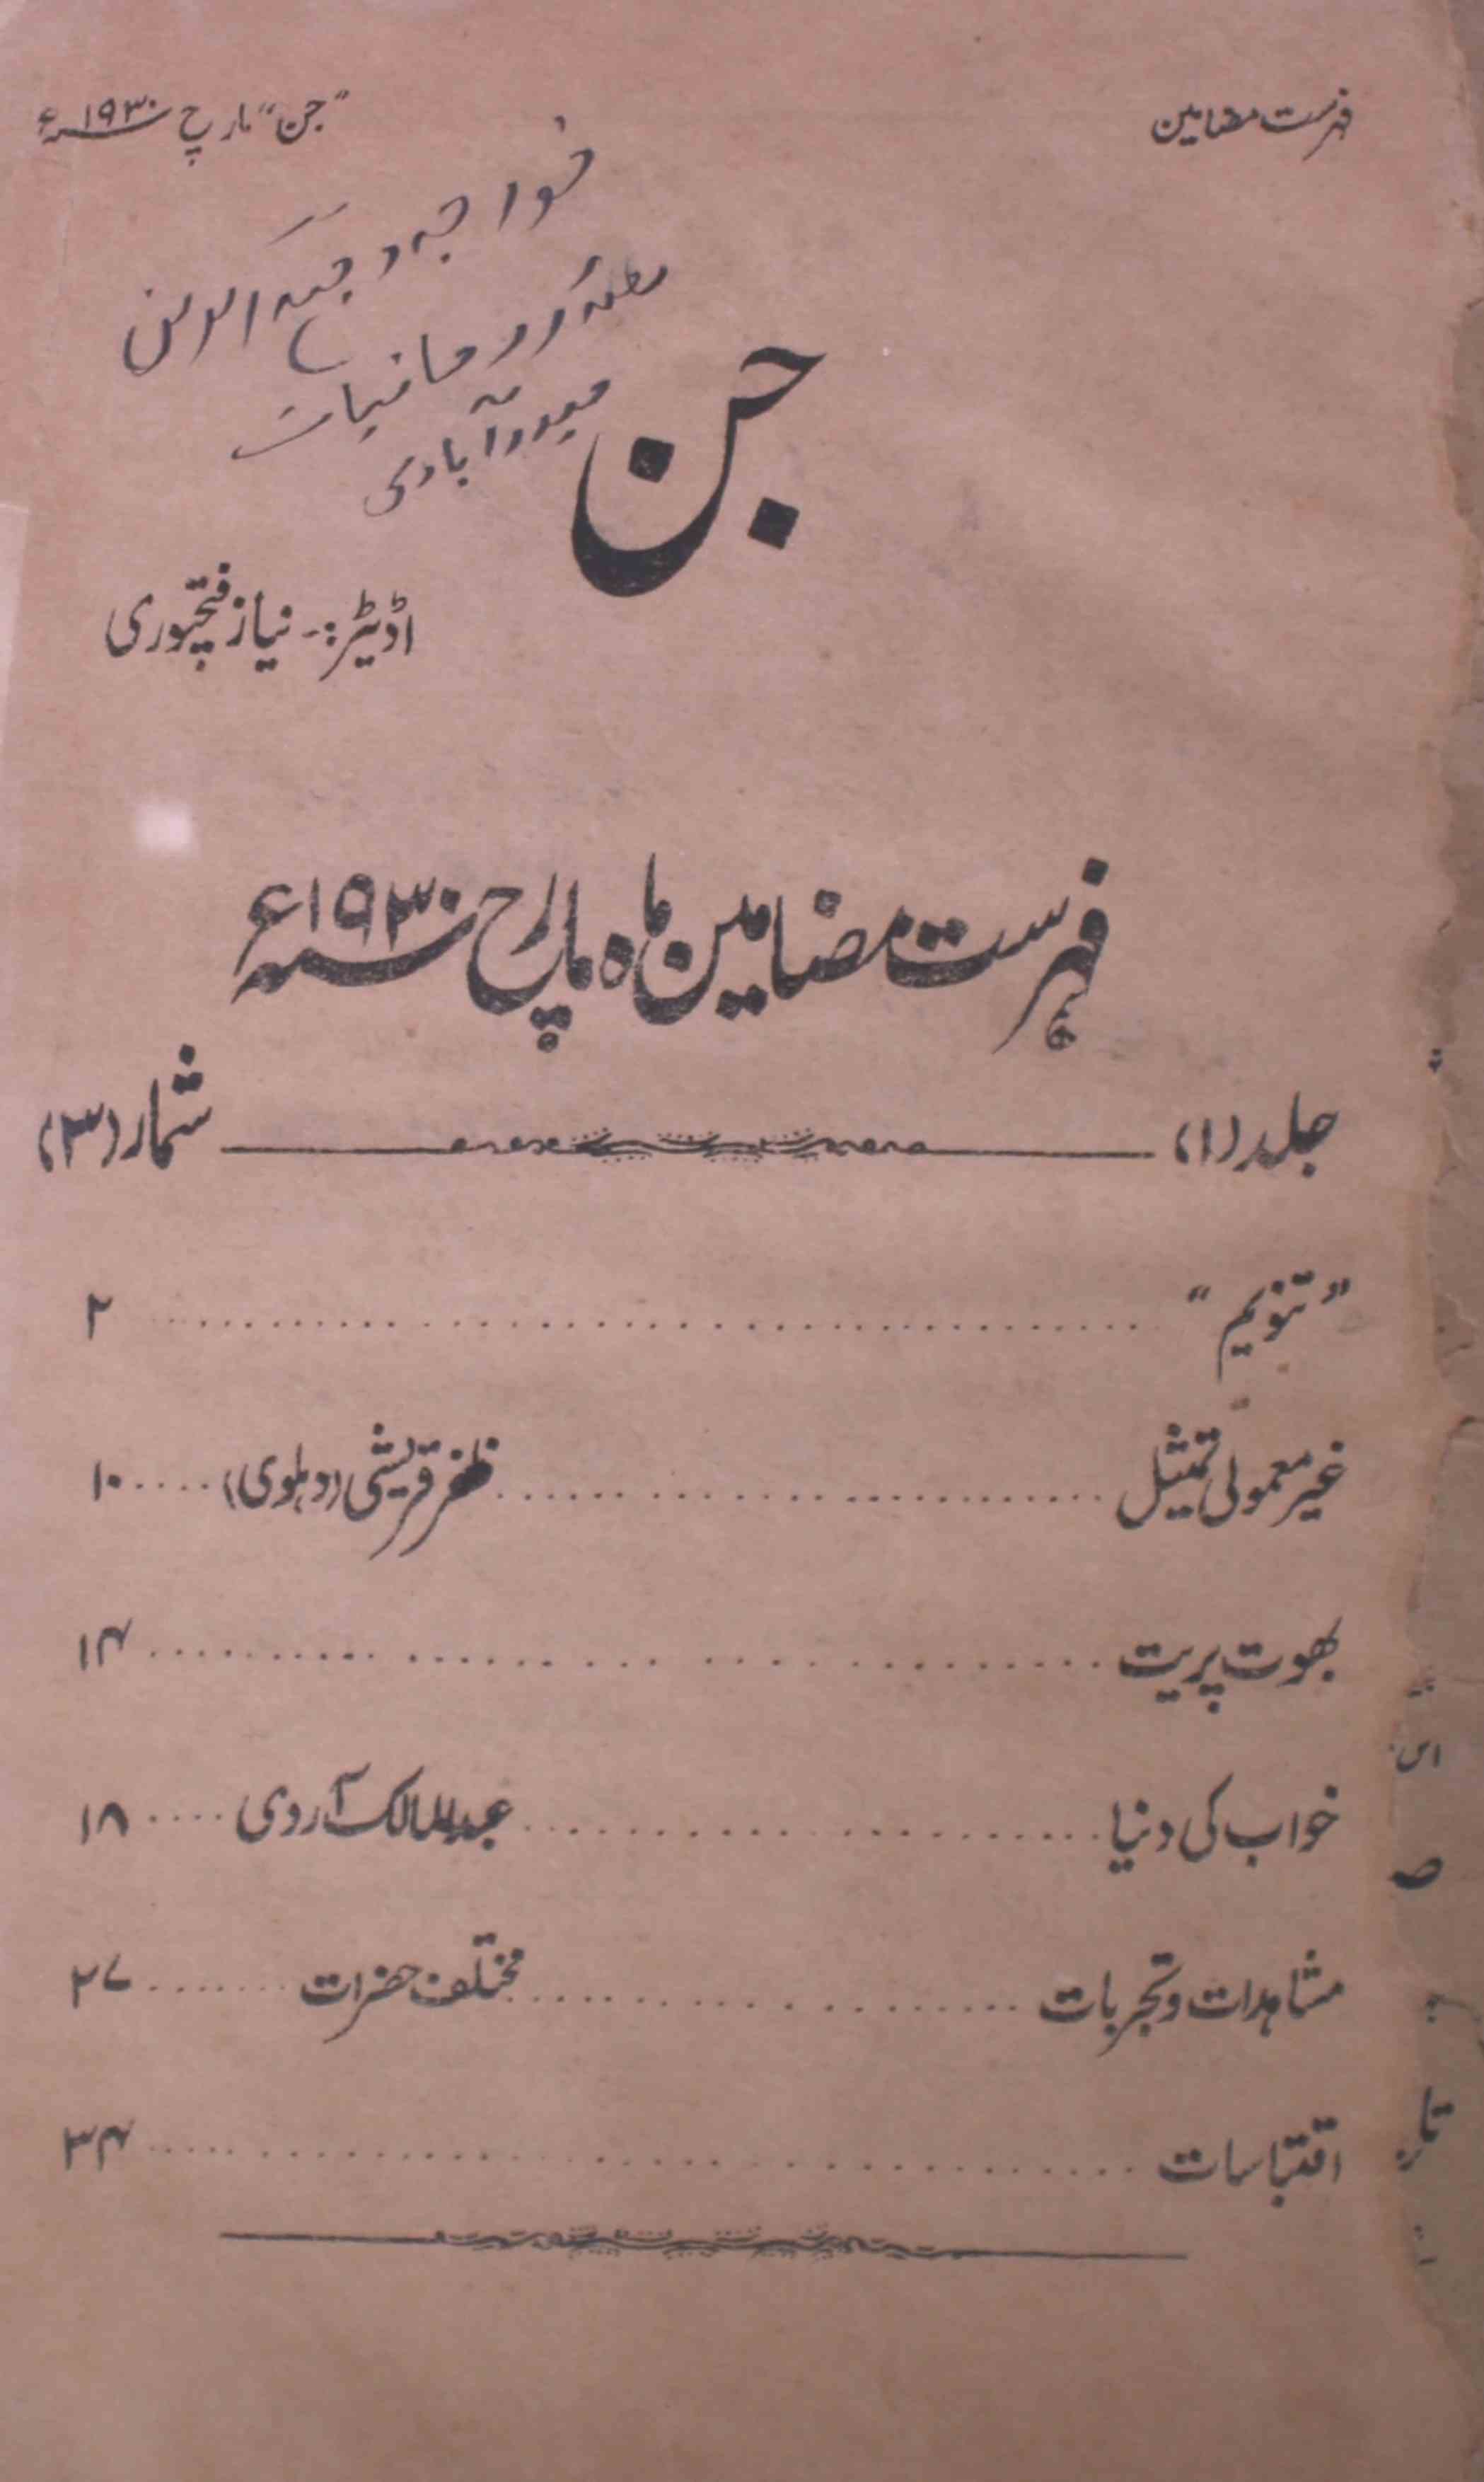 فہرست مضامین
"جن" مارچ ۱۹۳۰ء
خواجہ وجیہ الدین
روحانیات
حیدرآبادی
جن
اڈیٹر:۔ نیاز فتحپوری
فہرست مضامین ماہ مارچ ۱۹۳۰ء
جلد (۱) شمار (۳)
"تنویم" ۲
غیر معمولی تمثیل ظفر قریشی (دہلوی) ۱۰
بھوت پریت ۱۴
خواب کی دنیا عبدالمالک آروی ۱۸
مشاہدات و تجربات مختلف حضرات ۲۷
اقتباسات ۳۴